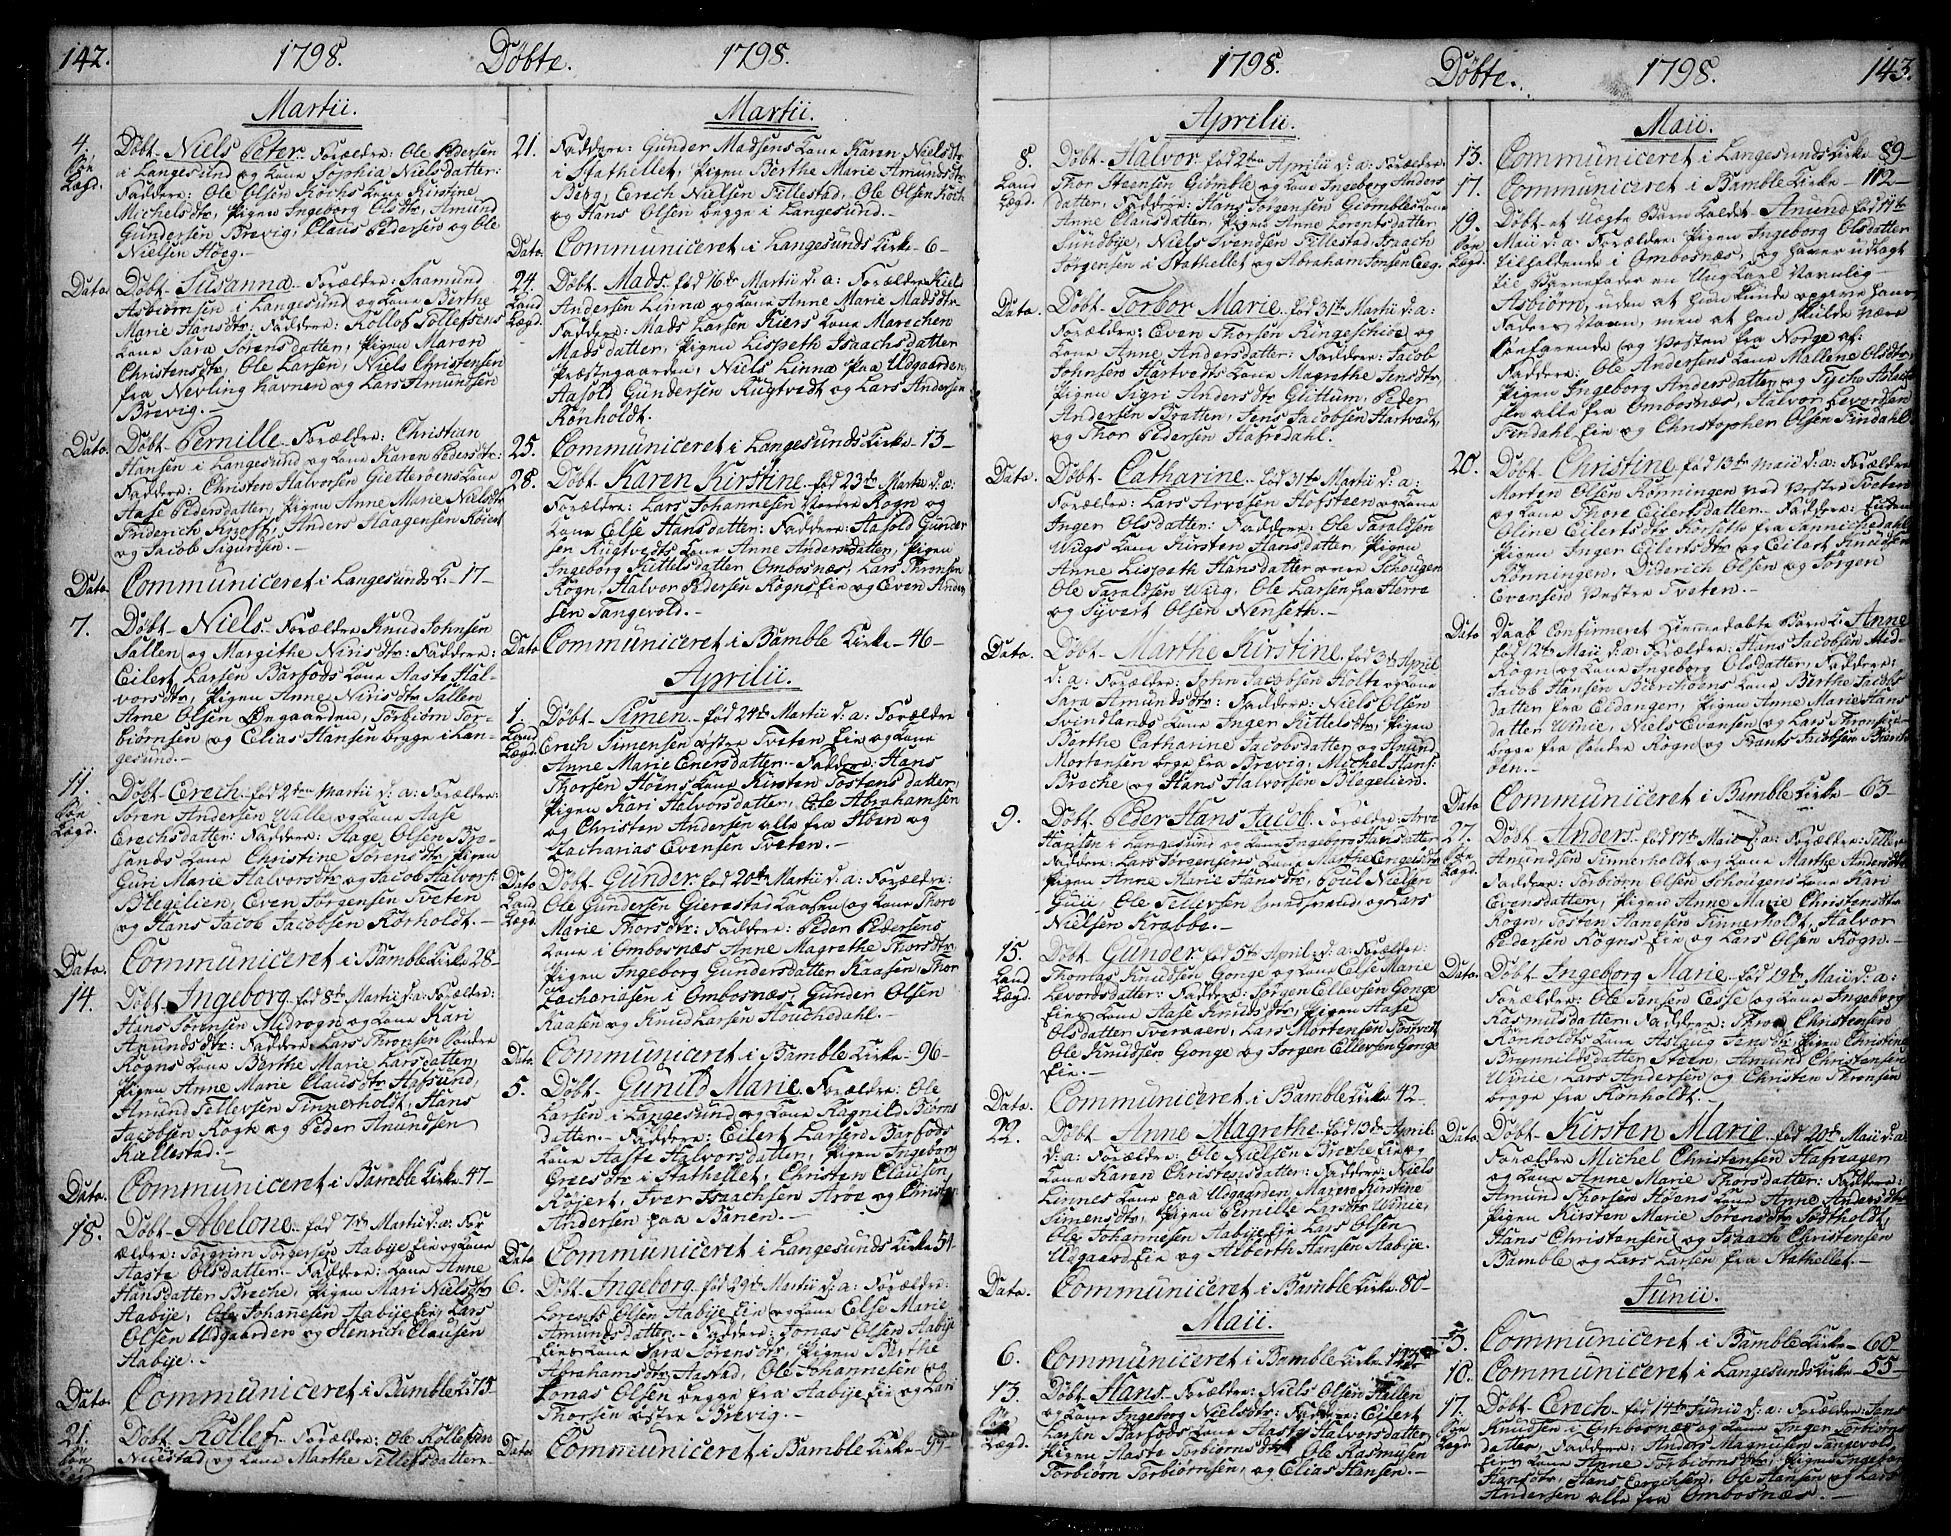 142. 1798. Döbte. 1798.
Martii.
4. Döbt Niels Peter. Forældre: Ole Pedersen
Søe i Langesund og Kone Sophia Nielsdatter:
Lægd. Faddere: Ole Olsen Kochs Kone Kirstine
Michelsdtr, Pigen Ingeborg Olsdtr, Amund
Gundersen Brevig, Claus Pedersen og Ole
Nielsen Höeg.
Dato. Döbt Susanna. Forældre: Saamund
Asbiörnsen i Langesund og Kone Birthe
Marie Hansdtr: Faddere: Rollof Tollefsens
Kone Sara Sörensdatter, Pigen Maren
Christensdtr, Ole Larsen, Niels Christensen
fra Nevling Havnen og Lars Amundsen
Brevig.
Dato. Döbt Pernille. Forældre: Christian
Hansen i Langesund og Kone Karen Pedersdtr:
Faddere: Christen Halvorsen Gietteröens Kone
Aase Pedersdatter, Pigen Anne Marie Nielsdtr
Friderich Krofts, Anders Haagensen Röiert
og Jacob Sigurdsen.
Dato. Communiceret i Langesunds K. 17
7. Döbt Niels. Forældre Knud Johnsen
Sallen og Margithe Nirisdtr: Faddere:
Eilert Larsen Barfods Kone Aaste Hal-
vorsdtr, Pigen Anne Nirisdtr Sallen
Arne Olsen Öngaarden, Torbiörn Tor-
biörnsen og Elias Hansen begge i Lan-
gesund.
11. Döbt Erech fød 2den Martii d: a: Forældre:
Søe Sören Andersen Walle og Kone Aase
Lægd. Erechsdatter: Faddere: Aage Olsen Bro-
sunds Kone Christine Sörensdtr, Pigen
Guri Marie Halvorsdtr og Jacob Halvors:
Blegelien, Even Jörgensen Tveten
og Hans Jacob Jacobsen Rörholdt.
Dato. Communiceret i Bamble Kirke 28
14. Döbt Ingeborg fød 8de Martii d: a: Forældre:
Hans Sörensen Midrogn og Kone Kari
Amundsdtr: Faddere: Lars Thronsen Söndre
Rogns Kone Berthe Marie Larsdatter,
Pigen Anne Marie Clausdtr Hafsund,
Amund Tellevsen Tinnerholdt, Hans
Jacobsen Rogn og Peder Amundsen
Kallestad.
Dato. Communiceret i Bamble Kirke 47
18. Döbt Abelone fød 7de Martii d: a: For
ældre: Torgrim Torgersen Aabije Eie og Kone
Aaste Olsdatter. Faddere: Kone Anne
Hansdatter Breche, Pigen Mari Nielsdtr
Aabije, Ole Johannesen Aabije Eie, Lars
Olsen Udgaarden og Henrich Clausen
Aabije.
Dato. Communiceret i Bamble K. 75
21. Döbt Rollef. Forældre: Ole Rollefsen
Søe Nuestad og Kone Marthe Tellefsdatter.
Lægd.
Martii.
21. Faddere: Gunder Madsens Kone Karen Nielsdtr
i Stathellet, Pigen Berthe Marie Amundsdtr
Berg, Erech Nielsen Tillestad, Ole Olsen Koch
og Hans Olsen begge i Langesund.
Dato. Communiceret i Langesunds Kirke 6
24. Döbt Mads fød 16de Martii d: a: Forældre Niels
Land Andersen Linna og Kone Anne Marie Madsdtr
Lægd. Faddere: Mads Larsen Kiers Kone Marechen
Madsdatter, Pigen Lispeth Isaachsdatter
Præstegaarden, Niels Linna paa Udgaarden,
Aasold Gundersen Rugtvedt og Lars Andersen
Rönholdt.
25. Communiceret i Langesunds Kirke 13
28. Döbt Karen Kirstine fød 23de Martii d: a:
Forældre: Lars Johannesen Nordre Rogn og
Kone Else Hansdatter: Faddere: Aasold Gunder
sen Rugtvedts Kone Anne Andersdatter, Pigen
Ingeborg Kittelsdtr Ombosnæs, Lars Thronsen
Rogn, Halvor Pedersen Rogns Eie og Even Ander
sen Tangevold.
Dato Communiceret i Bamble Kirke 46
Aprilii.
1. Döbt Simen fød 24de Martii d: a: Forældre
Land Erech Simensen østre Tveten Eie og Kone
Lægd. Anne Marie Enersdatter. Faddere: Hans
Thorsen Höens Kone Kirsten Tostensdatter,
Pigen Kari Halvorsdatter, Ole Abrahamsen
og Christen Andersen alle fra Höen og
Zacharias Evensen Tveten.
Dato Döbt Gunder fød 20de Martii d: a: Forældre:
Land Ole Gundersen Gierestad Kaasen og Kone Thore
Lægd. Marie Thorsdtr: Faddere: Peder Pedersens
Kone i Ombosnæs Anne Magrethe Thorsdtr,
Pigen Ingeborg Gundersdatter Kaasen, Thor
Zachariasen i Ombosnæs, Gunder Olsen
Kaasen og Knud Larsen Houchedahl.
Dato. Communiceret i Bamble Kirke 96
5. Döbt Gunild Marie. Forældre: Ole
Larsen i Langesund og Kone Ragnild Biörns
datter. Faddere: Eilert Larsen Barfods
Kone Aaste Halvorsdatter, Pigen Ingeborg
Greesdtr i Stathellet, Christen Clausen
Röiert, Iver Isaachsen Aroe og Christen
Andersen paa Barien.
Dato Communiceret i Langesunds Kirke 51
6. Döbt Ingeborg fød 29de Martii d: a: Forældre:
Lorents Olsen Aabije Eie og Kone Else Marie
Amundsdatter. Faddere: Jonas Olsen Aabije
Eies Kone Sara Sörensdtr, Pigen Berthe
Abrahamsdtr Aastad, Ole Johannesen og
Jonas Olsen begge fra Aabije Eie og Lars
Thorsen østre Brevig.
Dato. Communiceret i Bamble Kirke
1798. Döbte. 1798. 143.
Aprilii.
8. Döbt Halvor fød 2den Aprilii d: a: Forældre
Land Thor Steensen Giömble og Kone Ingeborg Anders
Lægd. datter, Faddere: Hans Jörgensen Giömbles Kone
Anne Clausdatter, Pigen Anne Lorentsdatter
Sundbye, Niels Svendsen Tillestad, Isaach
Jörgensen i Stathellet og Abraham Jonsen Eeg.
Dato. Döbt Torbor Marie fød 31te Martii d: a:
Forældre: Even Thorsen Ringeschioe og
Kone Anne Andersdatter: Faddere: Jacob
Johnsen Hartvedts Kone Magrethe Jensdtr,
Pigen Sigri Andersdtr Glittum, Peder
Andersen Braatten, Jens Jacobsen Hartvedt,
og Thor Pedersen Hafredahl.
Dato. Döbt Catharine fød 31te Martii d: a:
Forældre: Lars Arvesen Hofsteen og Kone
Inger Olsdatter: Faddere: Ole Taraldsen
Wiigs Kone Kirsten Hansdatter, Pigen
Anne Lispeth Hansdatter Schougen
Ole Taraldsen Wiig, Ole Larsen fra Herre
og Syvert Olsen Nenseth.
Dato. Döbt Marthe Kirstine fød 3de April
d: a: Forældre: John Jacobsen Holte og Kone
Sara Amundsdtr: Faddere: Niels Olsen
Svindlands Kone Inger Kittelsdtr, Pigen
Berthe Catharine Jacobsdatter og Amund
Mortensen begge fra Brevig, Michel Hans:
Breche og Hans Halvorsen Blegelien.
9. Döbt Peder Hans Jacob. Forældre: Arve
Hansen i Langesund og Kone Ingeborg Hansdatter
Faddere: Lars Jörgensens Kone Marthe Engesdtr
Pigen Anne Marie Hansdtr, Poul Nielsen
Guii, Ole Tellevsen Smedsrøstad og Lars
Nielsen Krabbe.
15. Döbt Gunder fød 5te April d: a: Forældre:
Land Thomas Knudsen Gonge og Kone Else Marie
Lægd. Levordsdatter: Faddere: Jörgen Ellevsen Gonge
Eies Kone Aase Knudsdtr, Pigen Aase
Olsdatter Tvervaen, Lars Mortensen Tostvedt
Ole Knudsen Gonge og Jörgen Ellevsen Gonge
Eie.
Dato. Communiceret i Bamble Kirke 42
22. Döbt Anne Magrethe fød 13de April
d: a: Forældre: Ole Nielsen Breche Eie og
Kone Karen Christensdatter: Faddere: Niels
Linnes Kone paa Udgaarden, Maren Kirstine
Simensdtr, Pigen Pernille Larsdtr Winie,
Ole Johannesen Aabije Eie, Lars Olsen
Udgaards Eie og Alberth Hansen Aabije.
Dato. Communiceret i Bamble Kirke 80
Maii.
6. Communiceret i Bamble Kirke
13. Döbt Hans. Forældre: Niels Olsen Sallen
Søe og Kone Ingeborg Nielsdtr: Faddere: Eilert
Lægd. Larsen Barfods Kone Aaste Halvorsdatter,
Pigen Aaste Torbiörnsdtr, Ole Rasmusen
Torbiörn Torbiörnsen, og Elias Hansen.
Maii.
13. Communiceret i Langesunds Kirke 89
17. Communiceret i Bamble Kirke 112
19. Döbt et Uægte Barn kaldet Amund fød 17de
Søe Maii d: a: Forældre: Pigen Ingeborg Olsdatter
Lægd. tilholdende i Ombosnæs, og haver udlagt
til Barnefader en Ung Karl Navnlig
Asbiörn, uden at hun kunde opgive hans
Faders Navn, men at han skulde være
Søefarende og Vesten fra Norge af:
Faddere: Ole Andersens Kone Mallene Olsdtr,
Pigen Ingeborg Andersdatter og Tycho Aslach
sen alle fra Ombosnæs, Halvor Levordsen
Findahl Eie og Christopher Olsen Findahl.
20. Döbt Christine fød 13de Maii d: a: Forældre
Morten Olsen Rönningen ved Vestre Tveten
og Kone Thore Eilertsdatter. Faddere: Enken
Oline Eilertsdtr Hagelie fra Sannichedahl
Pigen Inger Eilertsdtr og Eilert Knudsen
Rönningen, Diderich Olsen og Jörgen
Evensen Vestre Tveten.
Dato Daab Confirmeret Hiemmedøbte Barn k: Anne
fød 12te Maii d: a: Forældre: Hans Jacobsen Mid-
Rogn og Kone Ingeborg Olsdatter, Faddere:
Jacob Hansen Bierchöens Kone Berthe Jacobs
datter fra Eidanger, Pigen Anne Marie Hans
datter Winie, Niels Evensen og Lars Thronsen
begge fra Söndre Rogn og Frants Jacobsen Bierch
öen.
Dato Communiceret i Bamble Kirke 63
27. Döbt Anders fød 17de Maii d: a: Forældre: Tellev
Søe Amundsen Tinnerholdt og Kone Marthe Andersdtr
Lægd. Faddere: Torbiörn Olsen Schougens Kone Kari
Evensdatter, Pigen Anne Marie Christensdtr
Rogn, Tosten Hanesen Tinnerholdt, Halvor
Pedersen Rogns Eie og Lars Olsen Rogn.
Dato. Döbt Ingeborg Marie fød 19de Maii d: a:
Forældre: Ole Jensen Esse og Kone Ingeborg
Rasmusdatter: Faddere: Thron Christensens
Rönholdts Kone Aslaug Jensdtr, Pigen Christine
Brynnildsdatter Steen, Amund Christensen
Winie, Lars Andersen og Christen Thronsen
begge fra Rönholdt.
Dato. Döbt Kirsten Marie fød 20de Maii d: a:
Forældre Michel Christensen Hafsager
og Kone Anne Marie Thorsdatter: Faddere:
Amund Thorsen Höens Kone Anne Andersdtr
Pigen Kirsten Marie Sörensdtr Södtholdt,
Hans Christensen og Isaach Christensen
Bamble og Lars Larsen fra Stathellet.
Junii.
3. Communiceret i Bamble Kirke 60
10. Communiceret i Langesunds Kirke 55
17. Döbt Erech fød 14de Junii d: a: Forældre: Jens
Søe Knudsen i Ombosnæs og Kone Inger Torbiörns
Lægd. datter, Faddere: Anders Magnusen Tangevold
Eies Kone Anne Torbiörnsdtr, Pigen Ingeborg
Hansdtr, Hans Erechsen, Ole Hansen og Lars
Andersen alle fra Ombosnæs.